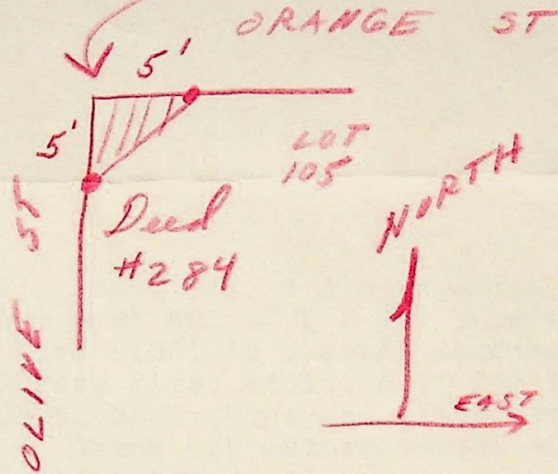 ORANGE ST
5'
5'
LOT
105
Deed
#284
OLIVE ST
NORTH
EAST